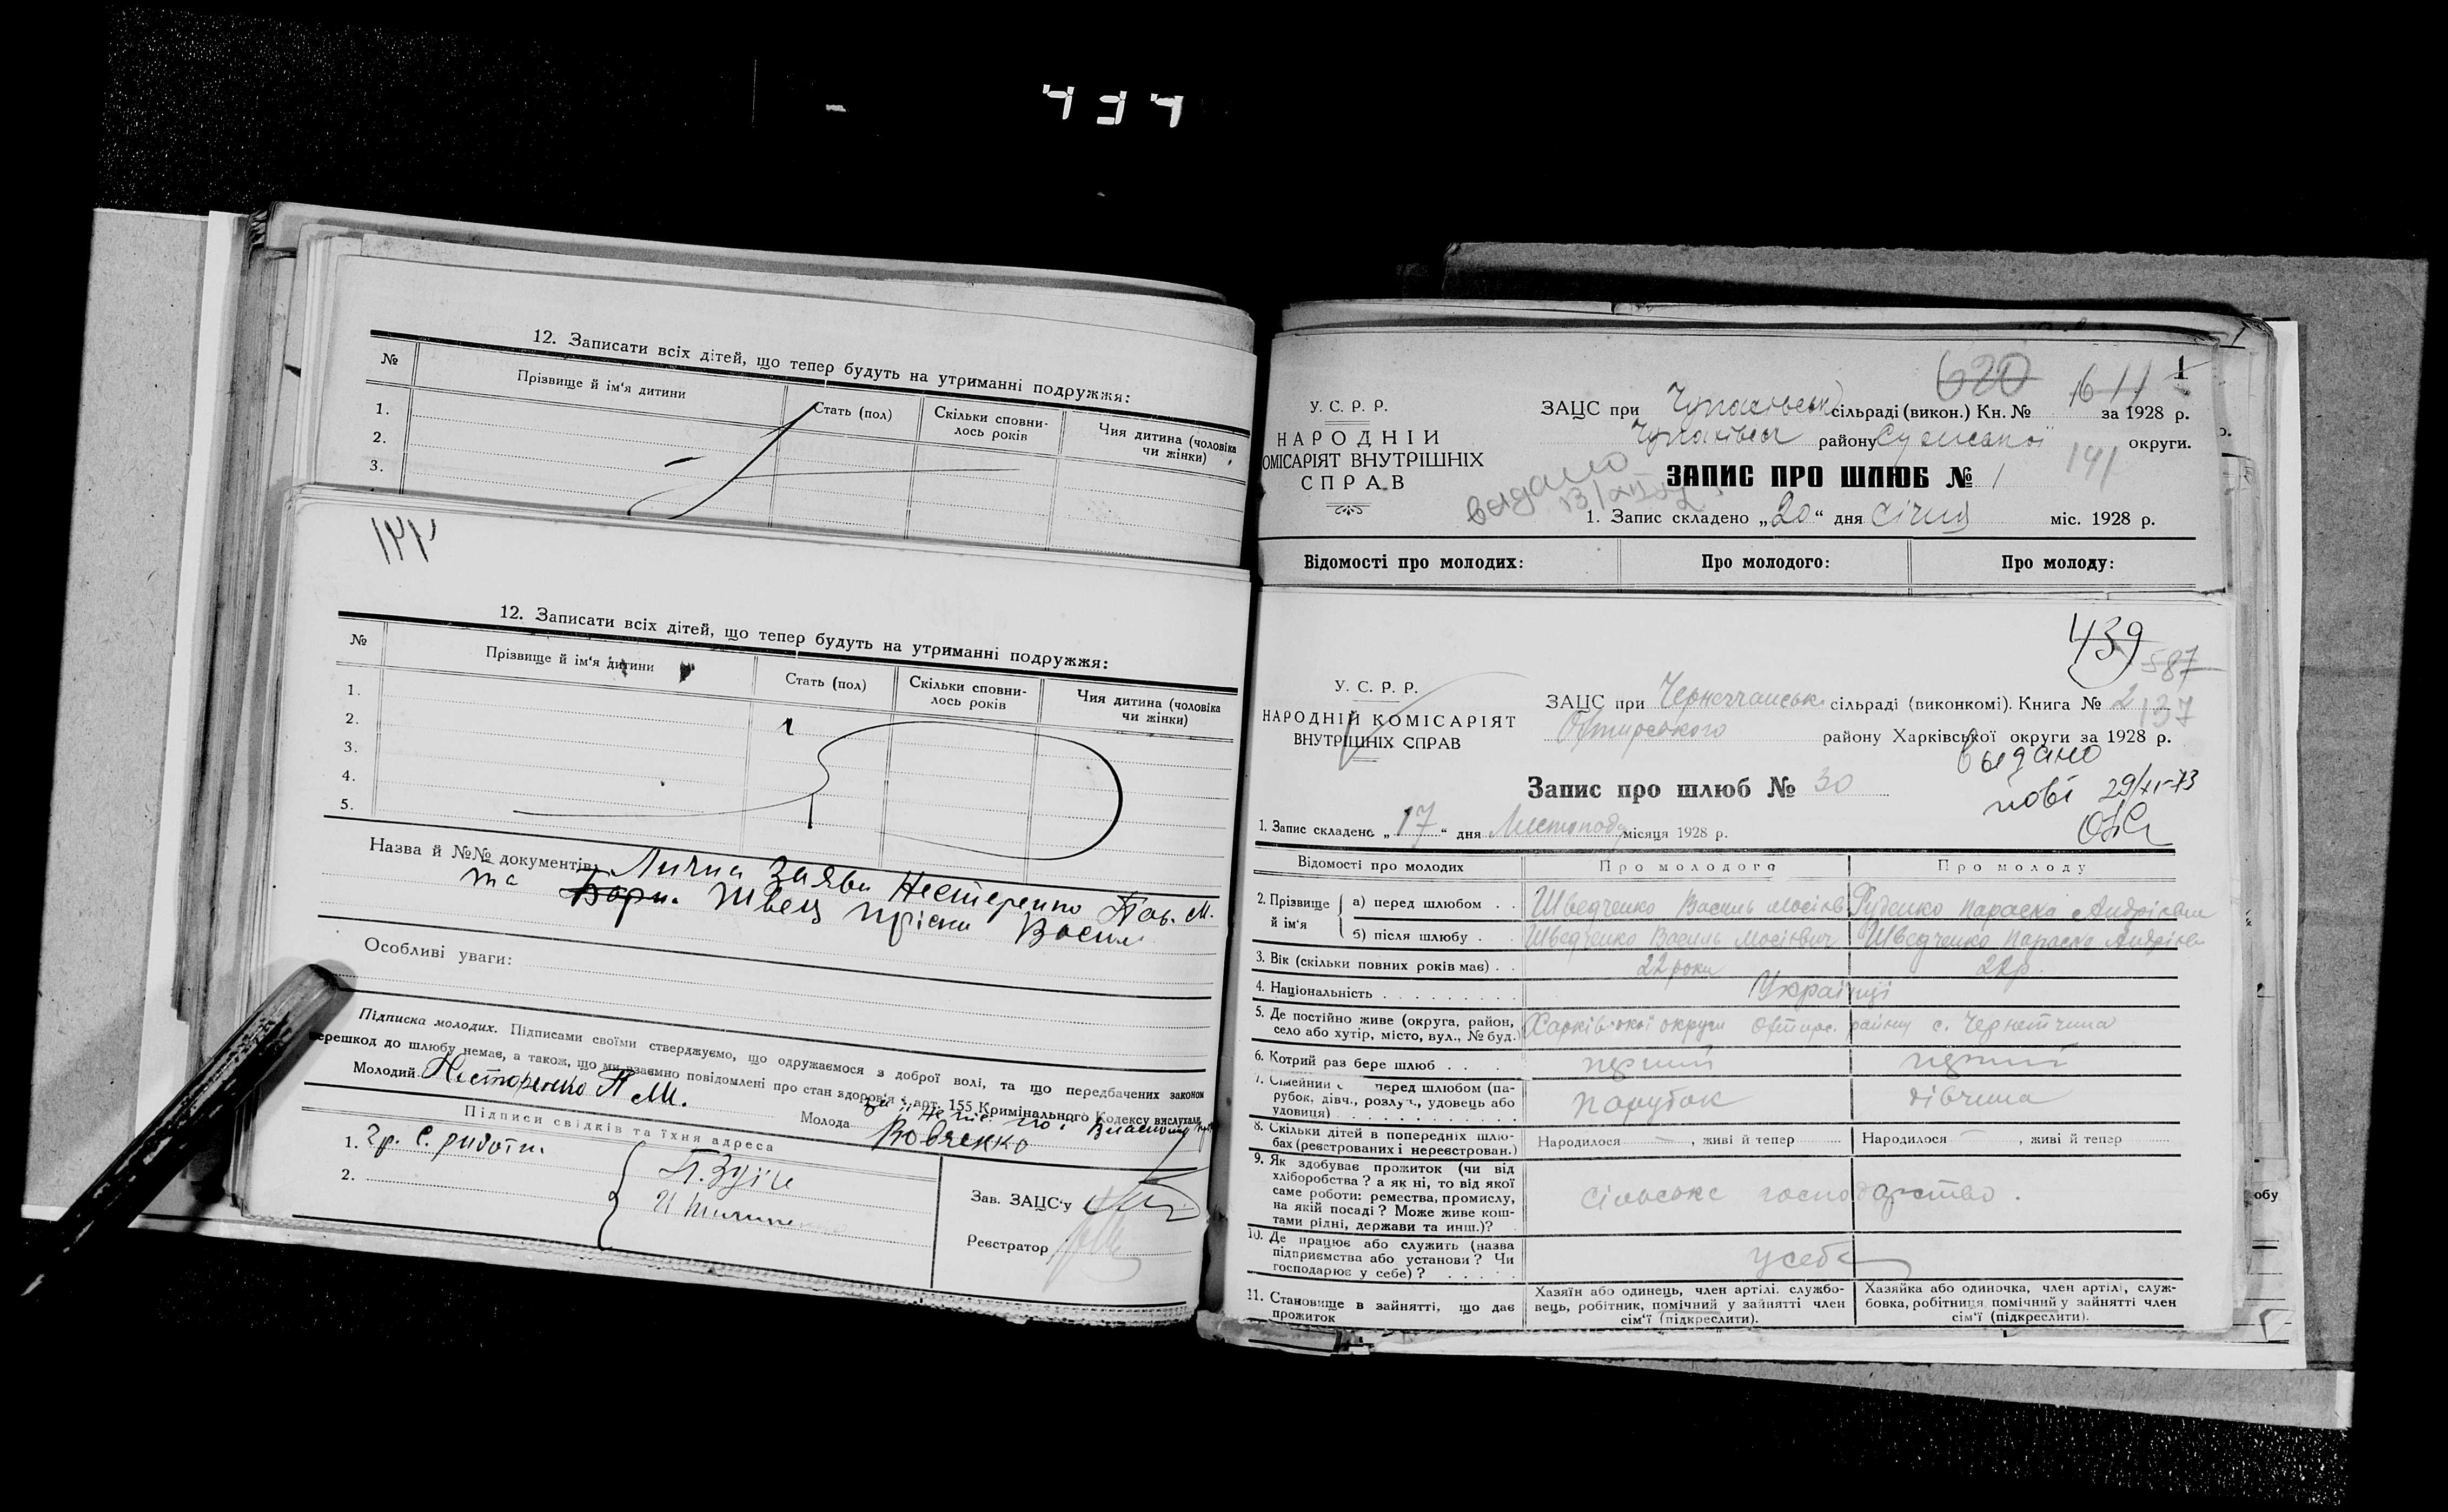 12. Записати всіх дітей, що тепер будуть на утриманні подружжя:
№ Прізвище й ім'я дитини Стать (пол) Скільки сповни-лось років Чия дитина (чоловіка чи жінки)
1.
2.
3.
12. Записати всіх дітей, що тепер будуть на утриманні подружжя:
№ Прізвище й ім'я дитини Стать (пол) Скільки сповни-лось років Чия дитина (чоловіка чи жінки)
1.
2.
3.
4.
5.
Назва й №№ документів: Лична заява Нестеренко Пав. М.
та Швец Пріски Васил
Особливі уваги:
Підписка молодих. Підписами своїми стверджуємо, що одружаємося з доброї волі, та що передбачених законом
перешкод до шлюбу немає, а також, що ми взаємно повідомлені про стан здоров'я і арт. 155 Кримінального Кодексу вислухали
Молодий Нестеренко П М. Молода
Вовченко
Підписи свідків та їхня адреса
1.
2.
Зав. ЗАЦС'у
Реєстратор
У. С. Р. Р.
НАРОДНІЙ
КОМІСАРІЯТ ВНУТРІШНІХ
СПРАВ
620 1611 1
ЗАЦС при Чупахівськ сільраді (викон.) Кн. № за 1928 р.
Чупахівськ району Сумської округи.
141
ЗАПИС ПРО ШЛЮБ № 1
видано
1. Запис складено „20“ дня січня міс. 1928 р.
Відомості про молодих: Про молодого: Про молоду:
439
587
У. С. Р. Р.
НАРОДНІЙ КОМІСАРІЯТ
ВНУТРІШНІХ СПРАВ
ЗАЦС при Чернеччанськ. сільраді (виконкомі). Книга № 2
137
Охтирського району Харківської округи за 1928 р.
выдано
Запис про шлюб № 30
нові 29/XI-73
1. Запис складено „17“ дня Листопада місяця 1928 р.
Відомості про молодих Про молодого Про молоду
2. Прізвище й ім'я
а) перед шлюбом . . Шведченко Василь Мосіїв Руденко Параска Андріївна
б) після шлюбу . Шведченко Василь Мосієвич Шведченко Параска Андріївн
3. Вік (скільки повних років має) . . 22 роки 22р.
4. Національність . . . . . . . . . . Українці
5. Де постійно живе (округа, район, село або хутір, місто, вул., № буд.) Харківської округи Охтирс. району с. Чернетчина
6. Котрий раз бере шлюб . . . . перший перший
7. Сімейний с перед шлюбом (парубок, дівч., розлуч., удовець або удовиця) . . . . . . . . . парубок дівчина
8. Скільки дітей в попередніх шлюбах (реєстрованих і нереєстрован.) Народилося — , живі й тепер Народилося — , живі й тепер
9. Як здобуває прожиток (чи від хліборобства? а як ні, то від якої саме роботи: ремества, промислу, на якій посаді? Може живе коштами рідні, держави та инш.)? Сільське господарство.
10. Де працює або служить (назва підприємства або установи? Чи господарює у себе)? . . . . . у себе
11. Становище в зайнятті, що дає прожиток Хазяїн або одинець, член артілі. службовець, робітник, помічний у зайнятті член сім'ї (підкреслити). Хазяйка або одиночка, член артілі, службовка, робітниця помічний у зайнятті член сім'ї (підкреслити).
обу